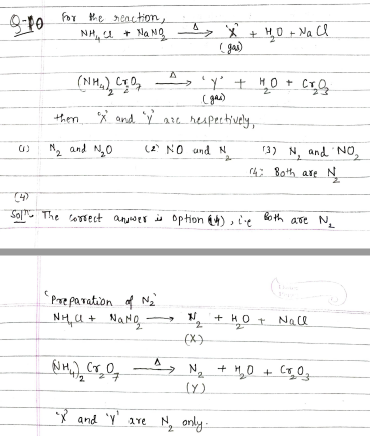 Q-10 For the reaction,
NH4Cl + NaNO2 —Δ→ 'X' + H2O + NaCl
(gas)
(NH4)2 Cr2O7 —Δ→ 'Y' + H2O + Cr2O3
(gas)
then, 'X' and 'Y' are respectively,
(1) N2 and N2O (2) NO and N2 (3) N2 and NO2
(4) Both are N2
(4)
Soln The correct answer is option (4), i.e Both are N2
'Preparation of N2'
NH4Cl + NaNO2 → N2 + H2O + NaCl
(X)
(NH4)2 Cr2O7 —Δ→ N2 + H2O + Cr2O3
(Y)
'X' and 'Y' are N2 only.